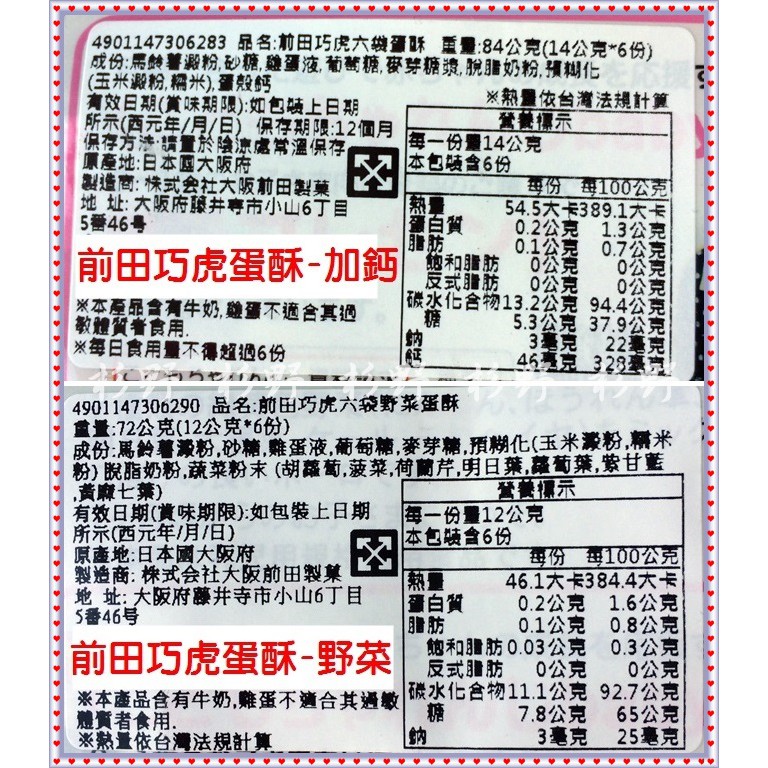 4901147306283 品名:前田巧虎六袋蛋酥 重量:84公克(14公克*6份)
成份:馬鈴薯澱粉,砂糖,雞蛋液,葡萄糖,麥芽糖漿,脫脂奶粉,預糊化
(玉米澱粉,糯米),蛋殼鈣
※熱量依台灣法規計算
有效日期(賞味期限):如包裝上日期
所示(西元年/月/日) 保存期限:12個月
保存方法:請置於陰涼處常溫保存
原產地:日本國大阪府
製造商:株式会社大阪前田製菓
地 址:大阪府藤井寺市小山6丁目
5番46号
前田巧虎蛋酥-加鈣
※本產品含有牛奶,雞蛋不適合其過
敏體質者食用.
※每日食用量不得超過6份
營養標示
每一份量14公克
本包裝含6份
每份 每100公克
熱量 54.5大卡 389.1大卡
蛋白質 0.2公克 1.3公克
脂肪 0.1公克 0.7公克
飽和脂肪 0公克 0公克
反式脂肪 0公克 0公克
碳水化合物 13.2公克 94.4公克
糖 5.3公克 37.9公克
鈉 3毫克 22毫克
鈣 46毫克 328毫克
杉野 杉野 杉野 杉野 杉野
4901147306290 品名:前田巧虎六袋野菜蛋酥
重量:72公克(12公克*6份)
成份:馬鈴薯澱粉,砂糖,雞蛋液,葡萄糖,麥芽糖,預糊化(玉米澱粉,糯米
粉)脫脂奶粉,蔬菜粉末(胡蘿蔔,菠菜,荷蘭芹,明日葉,蘿蔔葉,紫甘藍
,黃麻七葉)
有效日期(賞味期限):如包裝上日期
所示(西元年/月/日)
原產地:日本國大阪府
製造商:株式会社大阪前田製菓
地 址:大阪府藤井寺市小山6丁目
5番46号
前田巧虎蛋酥-野菜
※本產品含有牛奶,雞蛋不適合其過敏
體質者食用.
※熱量依台灣法規計算
營養標示
每一份量12公克
本包裝含6份
每份 每100公克
熱量 46.1大卡 384.4大卡
蛋白質 0.2公克 1.6公克
脂肪 0.1公克 0.8公克
飽和脂肪 0.03公克 0.3公克
反式脂肪 0公克 0公克
碳水化合物 11.1公克 92.7公克
糖 7.8公克 65公克
鈉 3毫克 25毫克